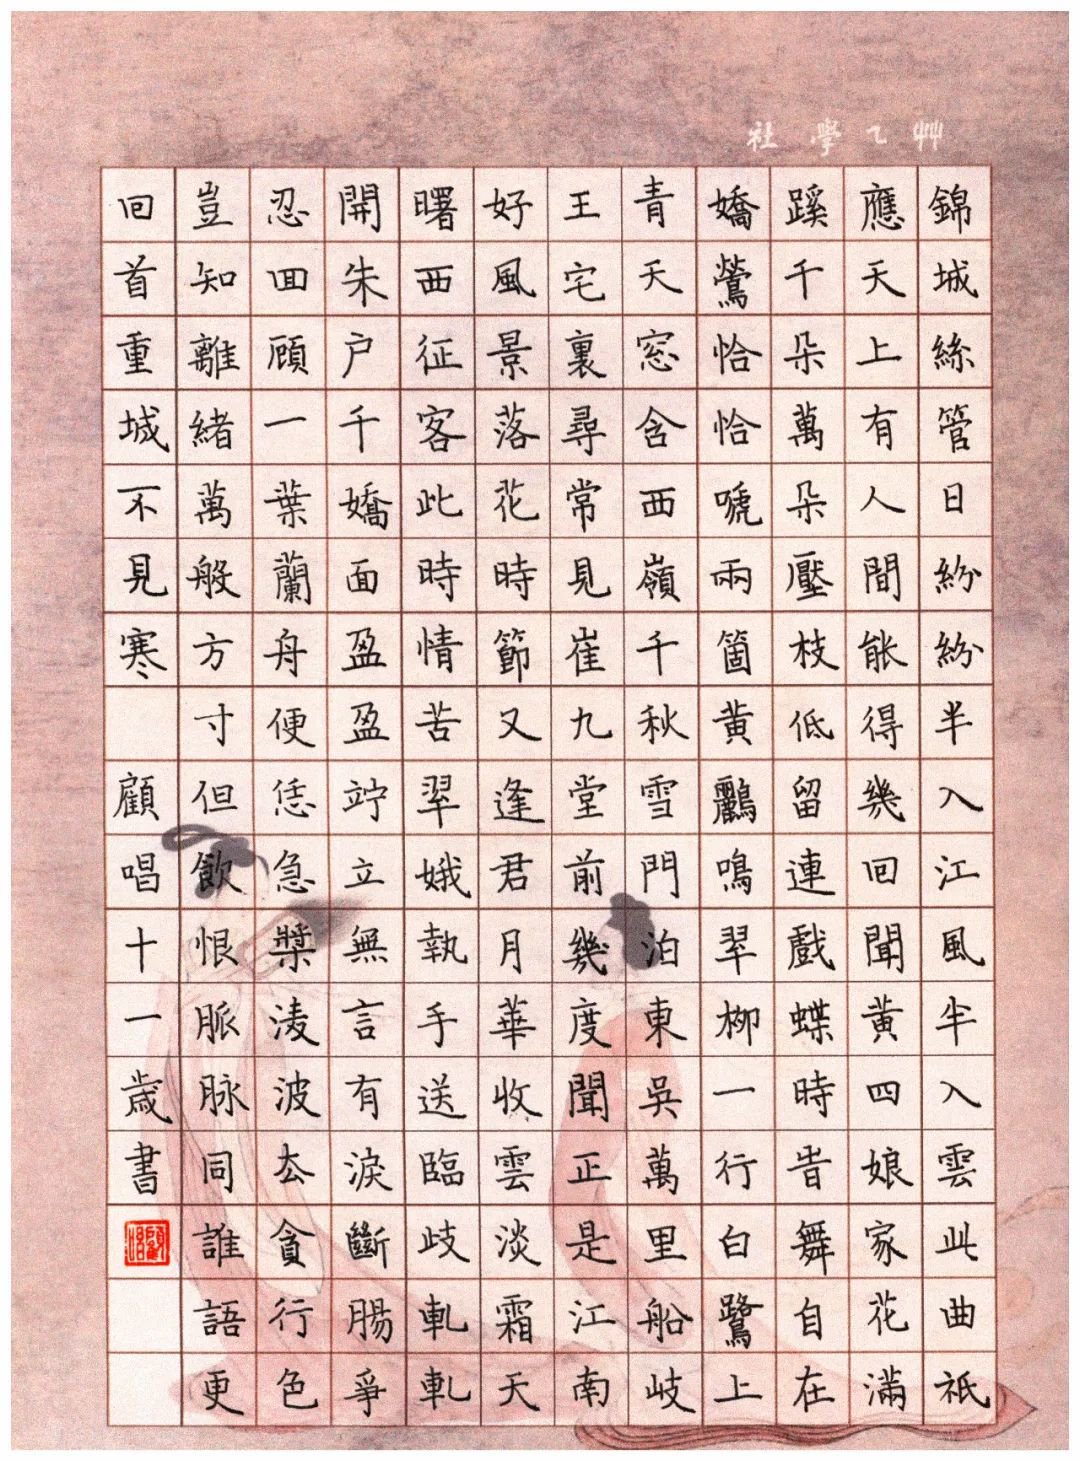 艸乙學社
錦城絲管日紛紛半入江風半入雲此曲祇
應天上有人間能得幾回聞黃四娘家花滿
蹊千朵萬朵壓枝低留連戲蝶時時舞自在
嬌鶯恰恰嗁兩箇黃鸝鳴翠柳一行白鷺上
青天窓含西嶺千秋雪門泊東吳萬里船岐
王宅裏尋常見崔九堂前幾度聞正是江南
好風景落花時節又逢君月華收雲淡霜天
曙西征客此時情苦翠娥執手送臨歧軋軋
開朱户千嬌面盈盈竚立無言有淚斷腸爭
忍回顧一葉蘭舟便恁急槳淩波去貪行色
豈知離緒萬般方寸但飲恨脈脈同誰語更
回首重城不見寒 顧唱十一歲書